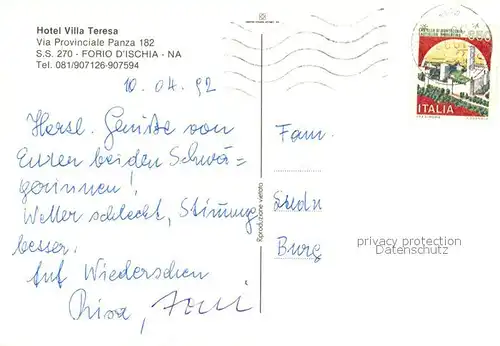 Hotel Villa Teresa
Via Provinciale Panza 182
S.S. 270 - FORIO D'ISCHIA - NA
Tel. 081/907126-907594
10. 04. 92
Herzl. Grüße von
Euren beiden Schwä=
gerinnen!
Wetter schlecht, Stimmung
besser.
Auf Wiedersehen
Fam.
Burg
Riproduzione vietata
ITALIA
privacy protection
Datenschutz